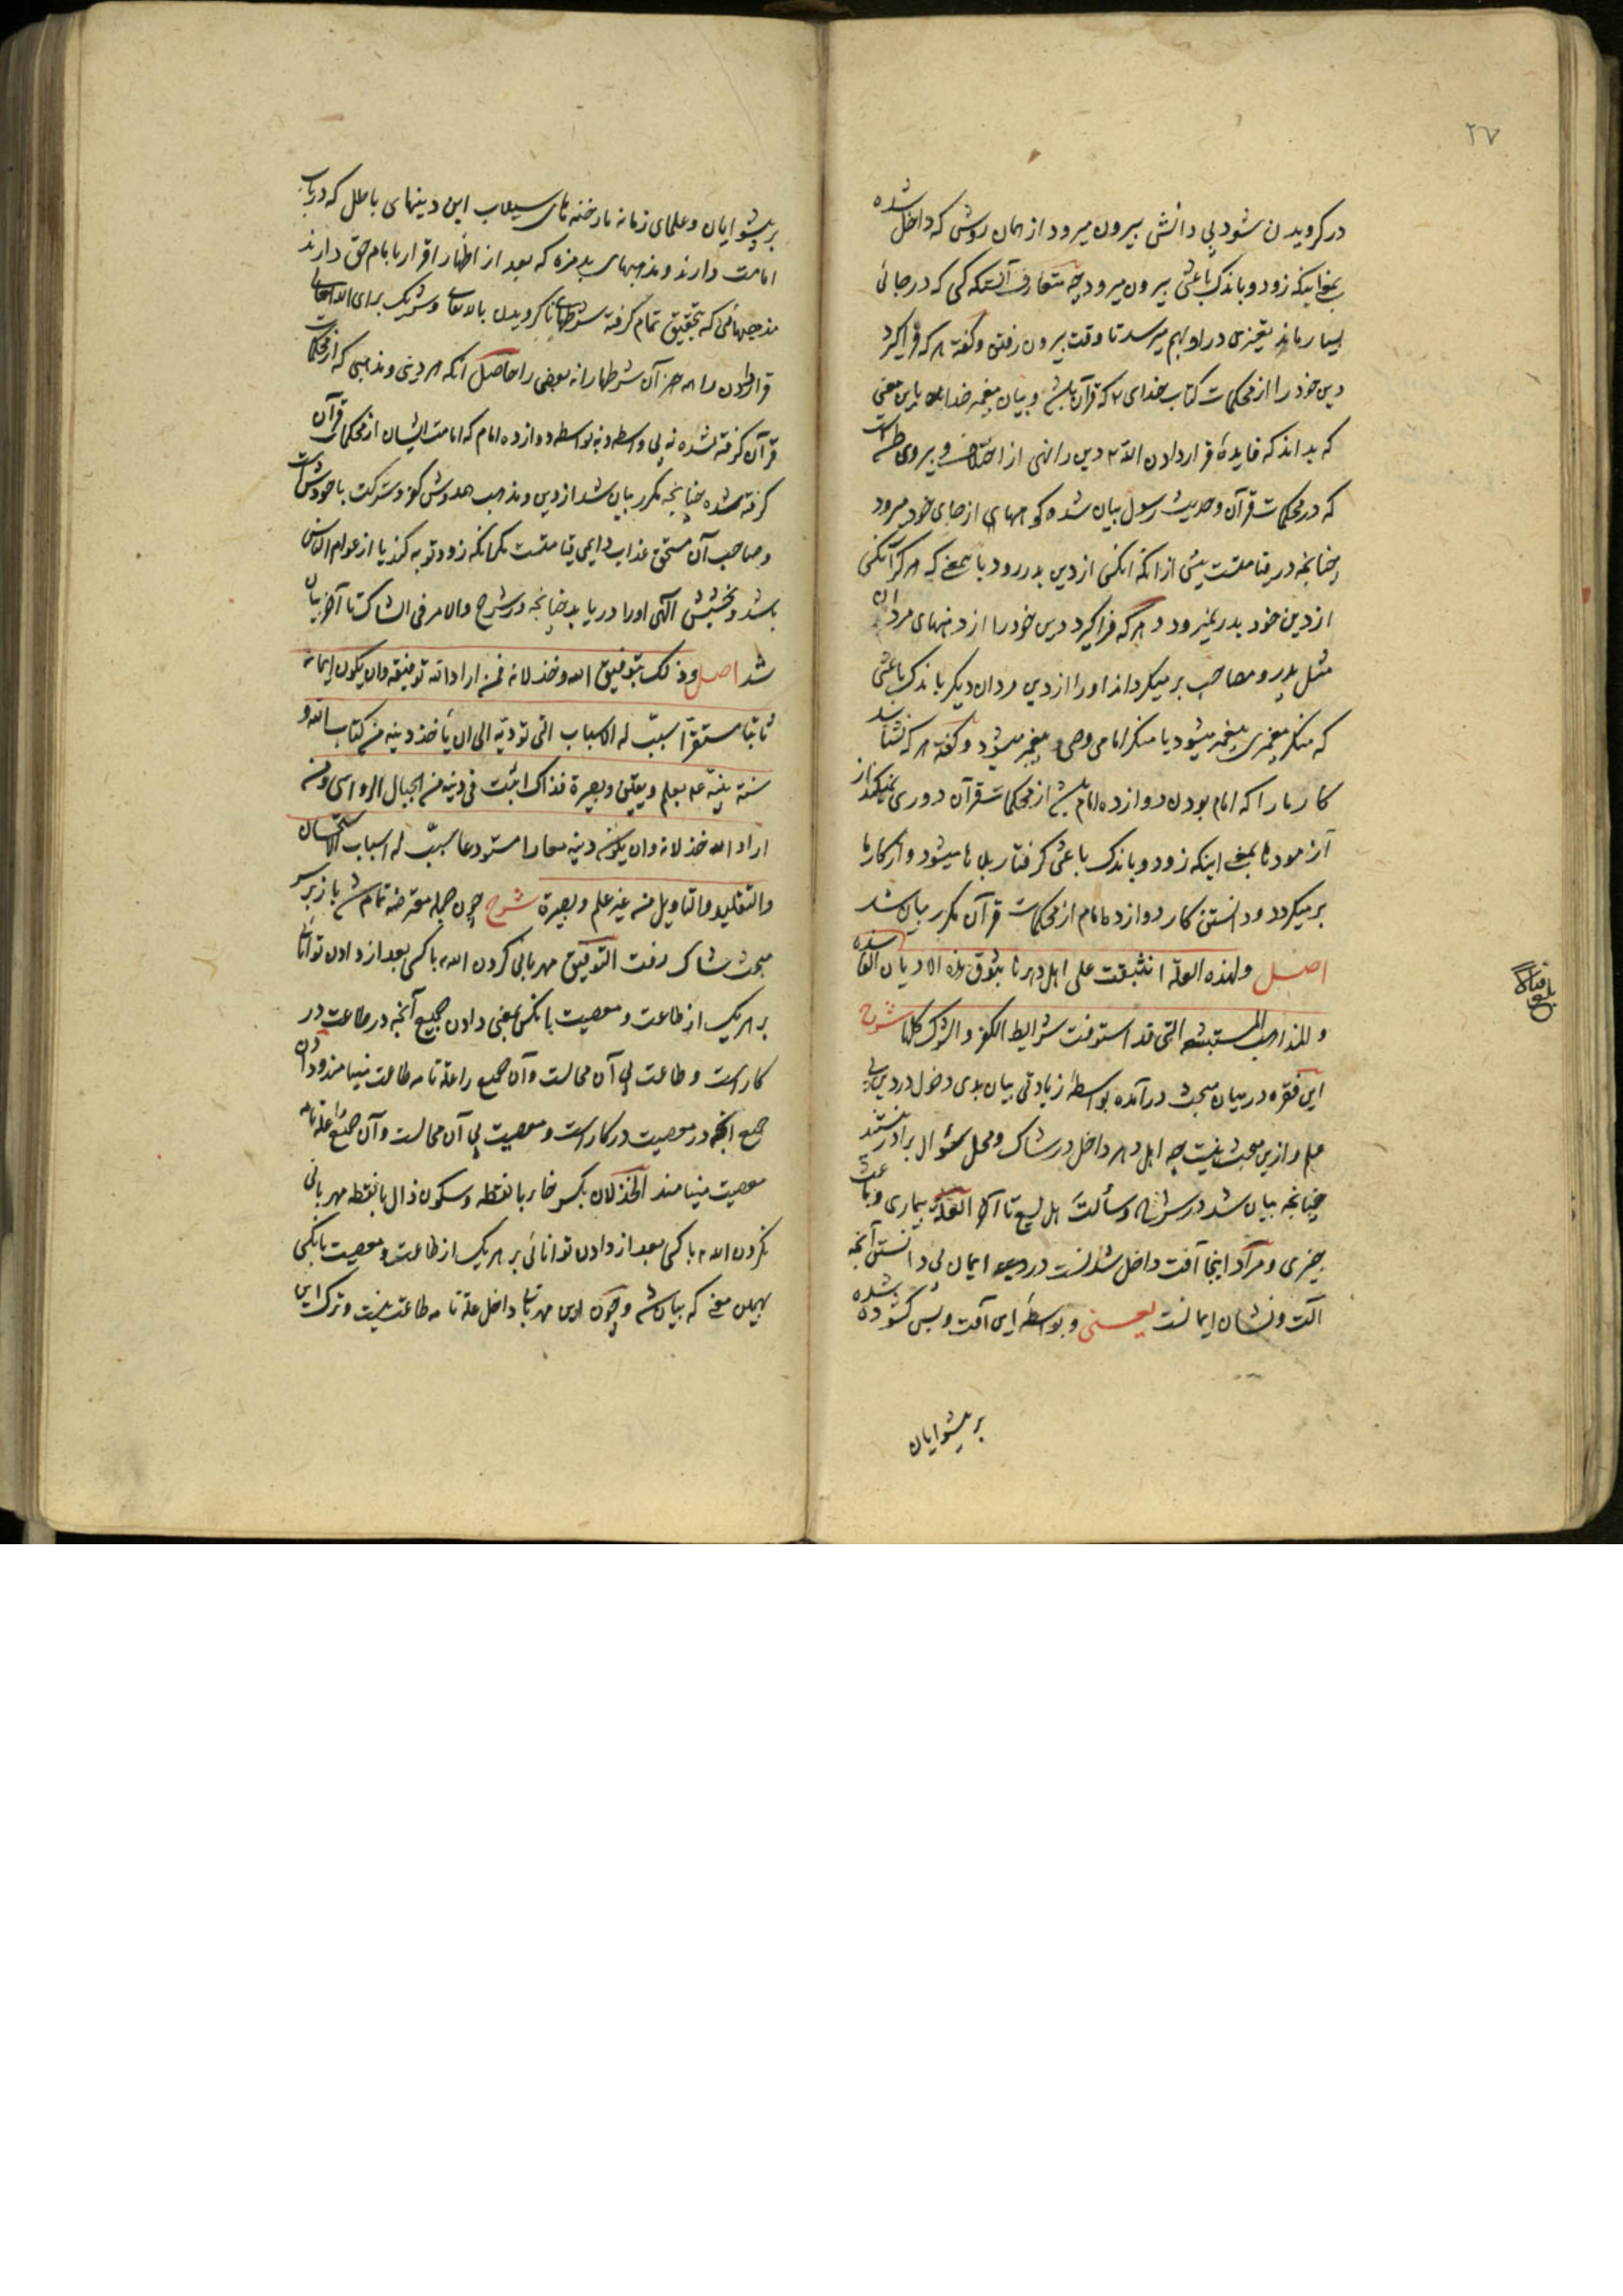 ۲۷
در گرویدن شود بی دانش بیرون میرود از همان روشی که داخل شده
بمعنی اینکه زود و باندک باعثی بیرون میرود چه متعارف آنستکه کسی که در جائی
بسیار ماند تغییری در او بهم میرسد تا وقت بیرون رفتن و گفته هر که فراگیرد
دین خود را از محکمات کتاب خدای که قرآن باشد و بیان پیغمبر خدا باین معنی
که بداند که فایدهٔ قرار دادن الله دین را نهی از اختلاف و پیروی ظن است
که در محکمات قرآن و حدیث رسول بیان شده کوههای از جای خود میرود
چنانچه در قیامتست پیش از آنکه آنکس از دین بدر رود باین معنی که هرگز آنکس
از دین خود بدر نمیرود و هر که فراگیرد دین خود را از دهنهای مردان
مثل پدر و مصاحب برمیگرداند او را از دین مردان دیگر باندک باعثی
که منکر پیغمبری پیغمبر میشود یا منکر امامی وصی پیغمبر میشود و گفته هر که نشناسد
کار ما را که امام بودن دوازده امام باشد از محکمات قرآن دوری نمیکند از
آزمودنها بمعنی اینکه زود و باندک باعثی گرفتار بلاها میشود و از کار ما
برمیگردد و دانستن کار دوازده امام از محکمات قرآن مکرر بیان شد
اصل ولهذه العلة انبثقت علی اهل دهرنا بثوق هذه الادیان الفاسده
والمذاهب المستبشعه التی قد استوفت شرایط الکفر والشرک کلها شرح
این فقره در میان مبحث درآمده بواسطهٔ زیادتی بیان بدی دخول در دین بی
علم و ازین مبحث نیست چه اهل دهر داخل در شاک و محل سؤال برادر نیستند
چنانچه بیان شد در شرح وسألت هل یسع تا آخر العلة بیماری و باعث
چیزی و مراد اینجا آفت داخل شدنست در دین و ایمان بی دانستن آنچه
آلت و نشان ایمانست یعنی و بواسطه این آفت و بس گشوده شده
بر پیشوایان
بلغ قبالا
بر پیشوایان و علمای زمانه ما رخنه های سیلاب این دینهای باطل که در باب
امامت دارند و مذهبهای بدمزه که بعد از اظهار اقرار بامام حق دارند
مذهبهائی که بتحقیق تمام گرفته شرطهای ناگرویدن بالله تعالی و شریک برای الله تعالی
قرار دادن را همه جز آن شرطها را نه بعضی را حاصل آنکه هر دینی و مذهبی که از محکمات
قرآن گرفته نشده نه بی واسطه و نه بواسطه دوازده امام که امامت ایشان از محکمات قرآن
گرفته شده چنانچه مکرر بیان شد از دین و مذهب همدوش کفر و شرکت با خودش است
و صاحب آن مستحق عذاب دایمی قیامتست مگر آنکه زود توبه کند یا از عوام الناس
باشد و بخشش الهی او را دریابد چنانچه در شرح والامر فی الشاک تا آخر بیان
شد اصل وذلک بتوفیق الله وخذلانه فمن اراد الله توفیقه وان یکون ایمانه
ثابتا مستقرا سبب له الاسباب التی تؤدیه الی ان یأخذ دینه من کتاب الله و
سنة نبیه بعلم ویقین وبصیرة فذاک اثبت فی دینه من الجبال الرواسی ومن
اراد الله خذلانه وان یکون دینه معارا مستودعا سبب له اسباب الاستحسان
والتقلید والتاویل من غیر علم وبصیرة شرح چون جمله معترضه تمام شد باز بر سر
مبحث شاک رفت التوفیق مهربانی کردن الله با کسی بعد از دادن توانائی
بر هر یک از طاعت و معصیت بانکس یعنی دادن جمیع آنچه در طاعت در
کار است و طاعت بی آن محالست و آن جمیع را علة تامه طاعت مینامند و دادن
جمیع آنچه در معصیت در کار است و معصیت بی آن محالست و آن جمیع را علة تامه
معصیت مینامند الخذلان بکسر خاء بانقطه و سکون ذال بانقطه مهربانی
نکردن الله با کسی بعد از دادن توانائی بر هر یک از طاعت و معصیت بانکس
بهمین معنی که بیان شد و چون این مهربانی داخل علة تامه طاعت نیست و ترک این